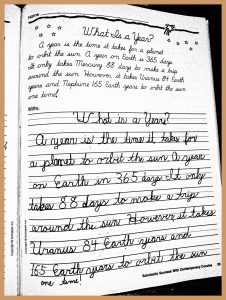 What Is a Year?
A year is the time it takes for a planet
to orbit the sun. A year on Earth is 365 days.
It only takes Mercury 88 days to make a trip
around the sun. However, it takes Uranus 84 Earth
years and Neptune 165 Earth years to orbit the sun
one time!
Write.
What is a Year?
A year is the time it takes for
a planet to orbit the sun A year
on Earth in 365 days It only
takes 88 days to make a trip
around the sun However it takes
Uranus 84 Earth years and
165 Earth years to orbit the sun
one time!
Scholastic Success With Contemporary Cursive